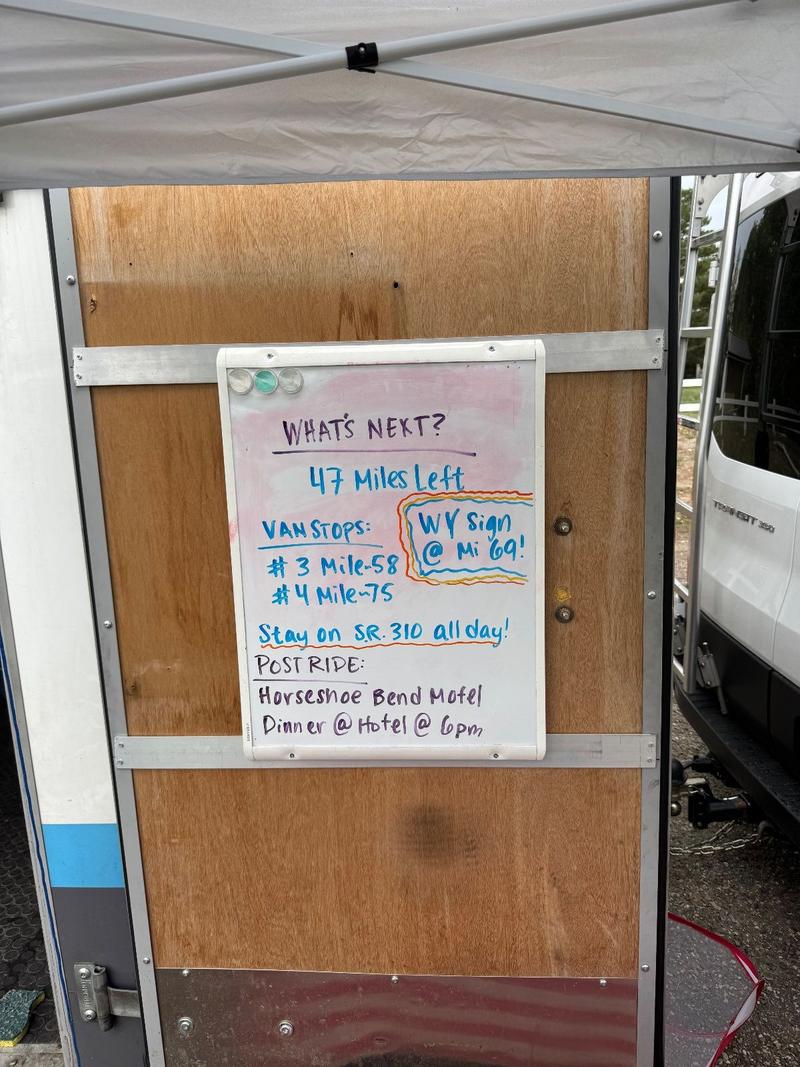 WHAT'S NEXT?
47 Miles Left
VAN STOPS:
# 3 Mile-58
#4 Mile-75
WY Sign
@ Mi 69!
Stay on S.R. 310 all day!
POST RIDE:
Horseshoe Bend Motel
Dinner @ Hotel @ 6pm
TRANSIT 350